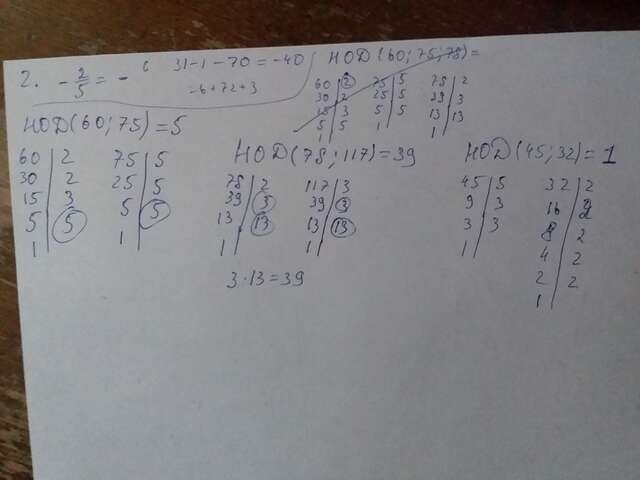 2. -2/5 = - 6 31-1-70=-40
-6+72+3
НОД(60;75;78)=
60|2 75|5 78|2
30|2 25|5 39|3
15|3 5|5 13|13
5|5 1| 1|
1|
НОД(60;75)=5
60|2 75|5
30|2 25|5
15|3 5|5
5|5 1|
1|
НОД(78;117)=39
78|2 117|3
39|3 39|3
13|13 13|13
1| 1|
3·13=39
НОД(45;32)=1
45|5 32|2
9|3 16|2
3|3 8|2
1| 4|2
2|2
1|